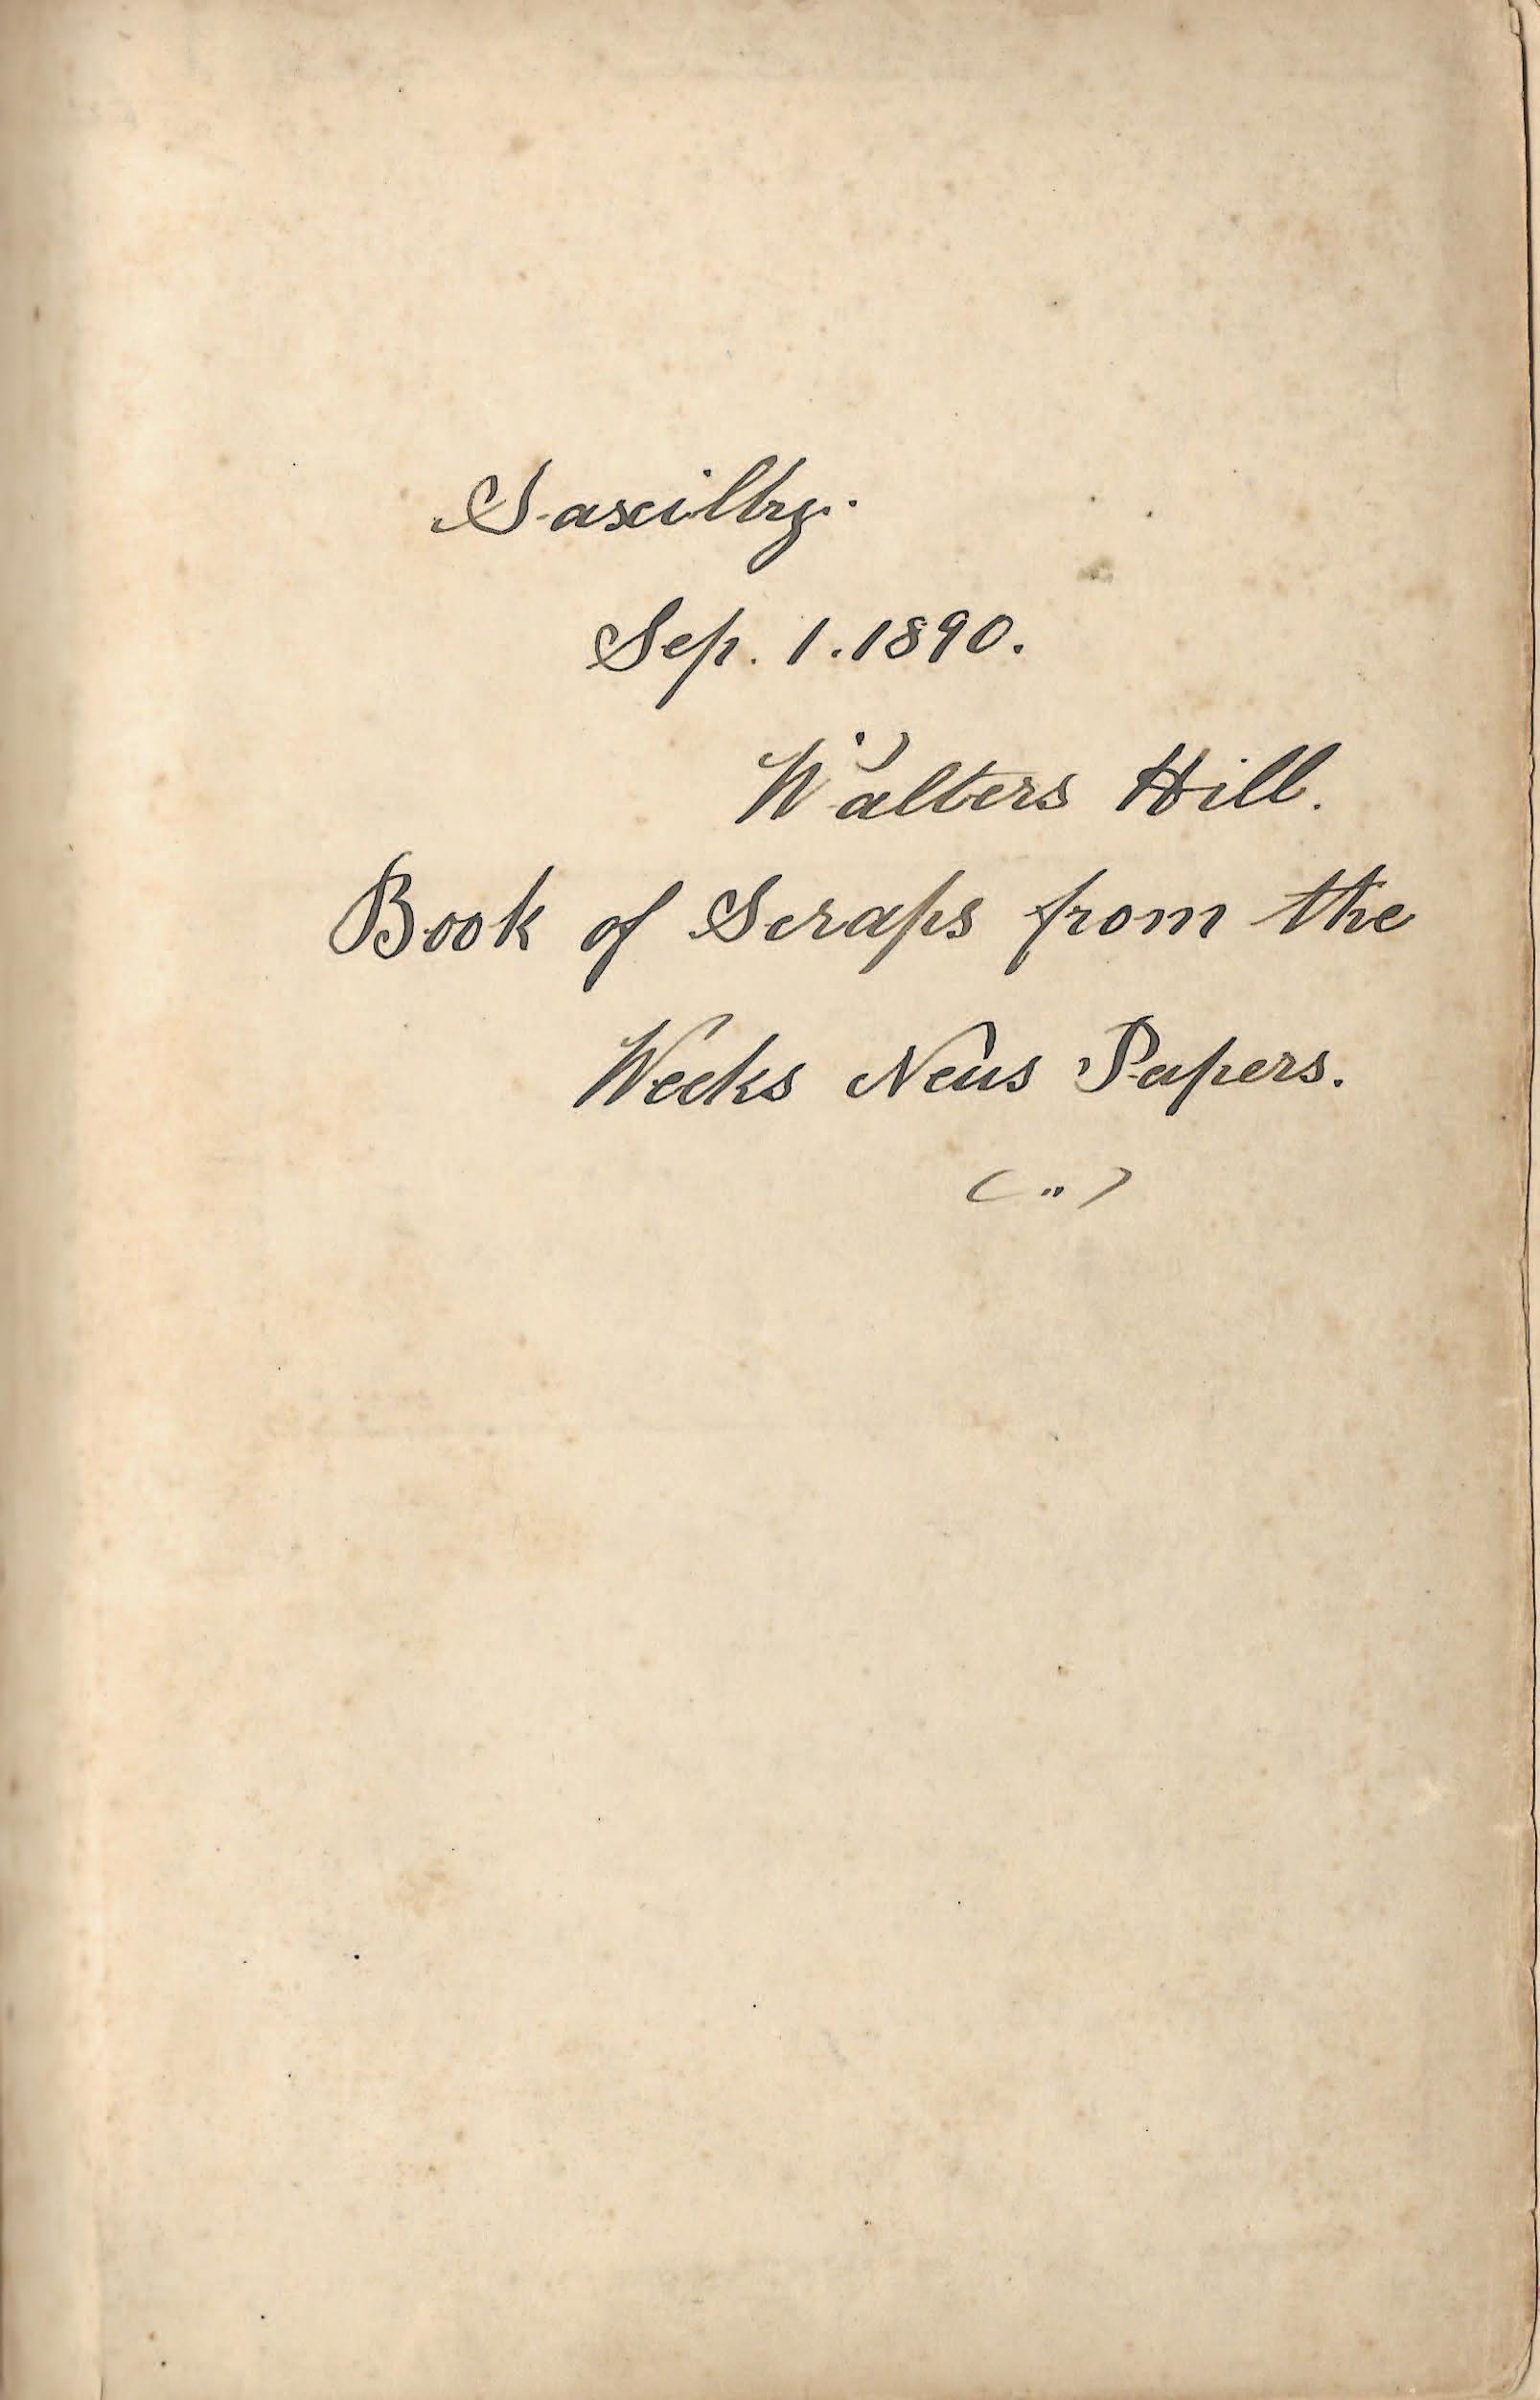 Saxilby.
Sep. 1. 1890.
Walters Hill.
Book of Scraps from the
Weeks News Papers.
( „ )